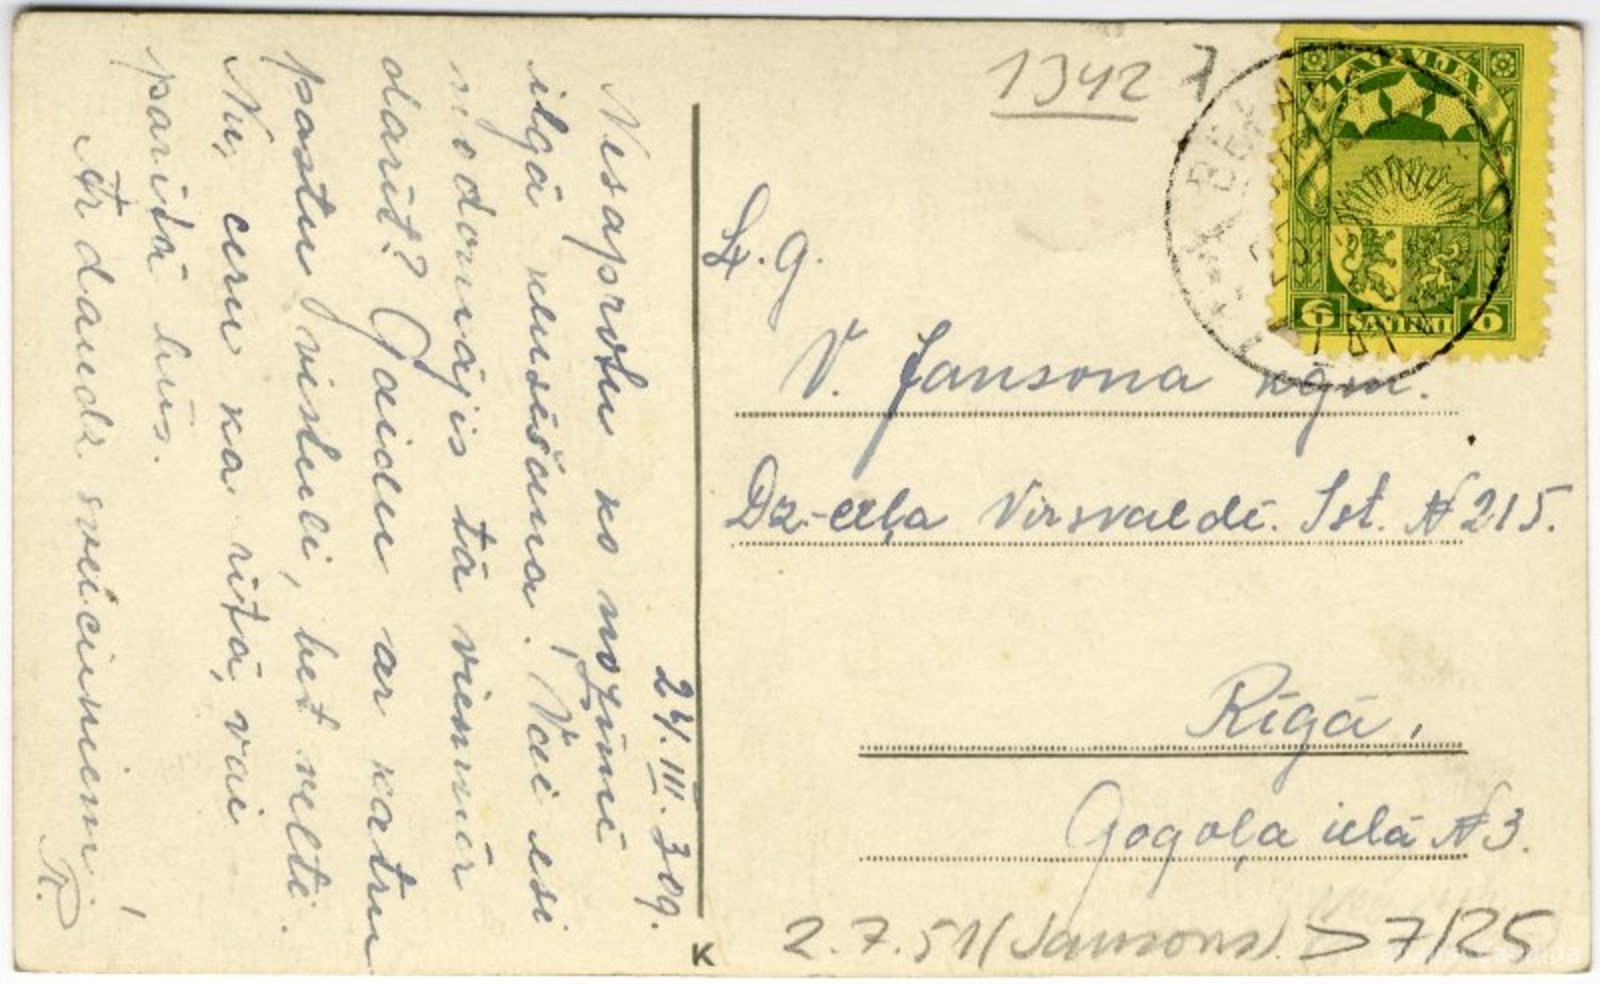 24.III.30g.
Nesaprotu ko nozīmē
ilgā klusēšana. Vai esi
nodomājis tā vienmēr
darīt? Gaidu ar katru
pastu vēstuli, bet velti.
Nu, ceru ka rītā, vai
parītā būs.
Ar daudz sveicieniem!
R.
1342 7
LATVIJA
6 SANTIMI 6
Lz. g.
V. Jansona kgm.
Dz-ceļa Virsvaldē. Ist. № 215.
Rīgā,
Gogoļa ielā № 3.
K
2.7.51 (Jansons). > 7/25